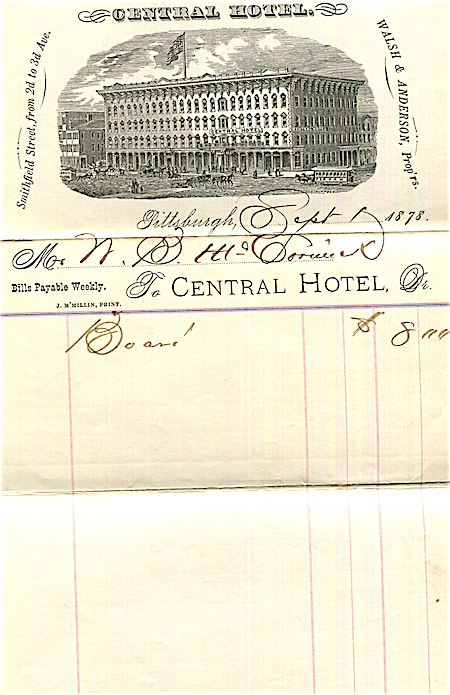 CENTRAL HOTEL.
Smithfield Street, from 2d to 3d Ave.
WALSH & ANDERSON, Prop'rs.
CENTRAL HOTEL
Pittsburgh, Sept 1 1878.
Mr W. S. McCormick
Bills Payable Weekly. To CENTRAL HOTEL, Dr.
J. M'MILLIN, PRINT.
Board $ 8 00